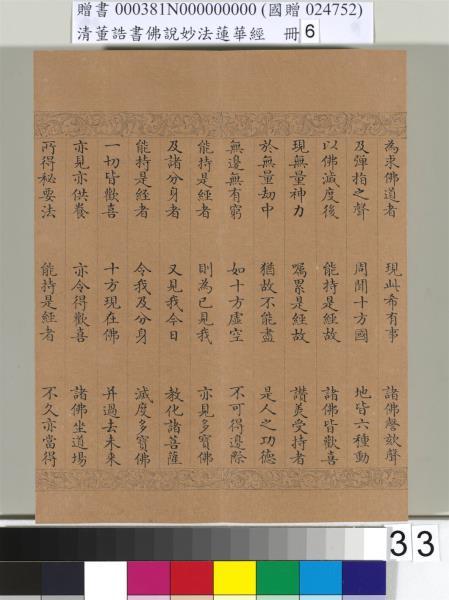 贈書 000381N000000000 (國贈 024752)
清董誥書佛說妙法蓮華經 冊 6
為求佛道者 現此希有事 諸佛謦欬聲
及彈指之聲 周聞十方國 地皆六種動
以佛滅度後 能持是經故 諸佛皆歡喜
現無量神力 囑累是經故 讚美受持者
於無量劫中 猶故不能盡 是人之功德
無邊無有窮 如十方虛空 不可得邊際
能持是經者 則為已見我 亦見多寶佛
及諸分身者 又見我今日 教化諸菩薩
能持是經者 令我及分身 滅度多寶佛
一切皆歡喜 十方現在佛 并過去未來
亦見亦供養 亦令得歡喜 諸佛坐道場
所得秘要法 能持是經者 不久亦當得
33